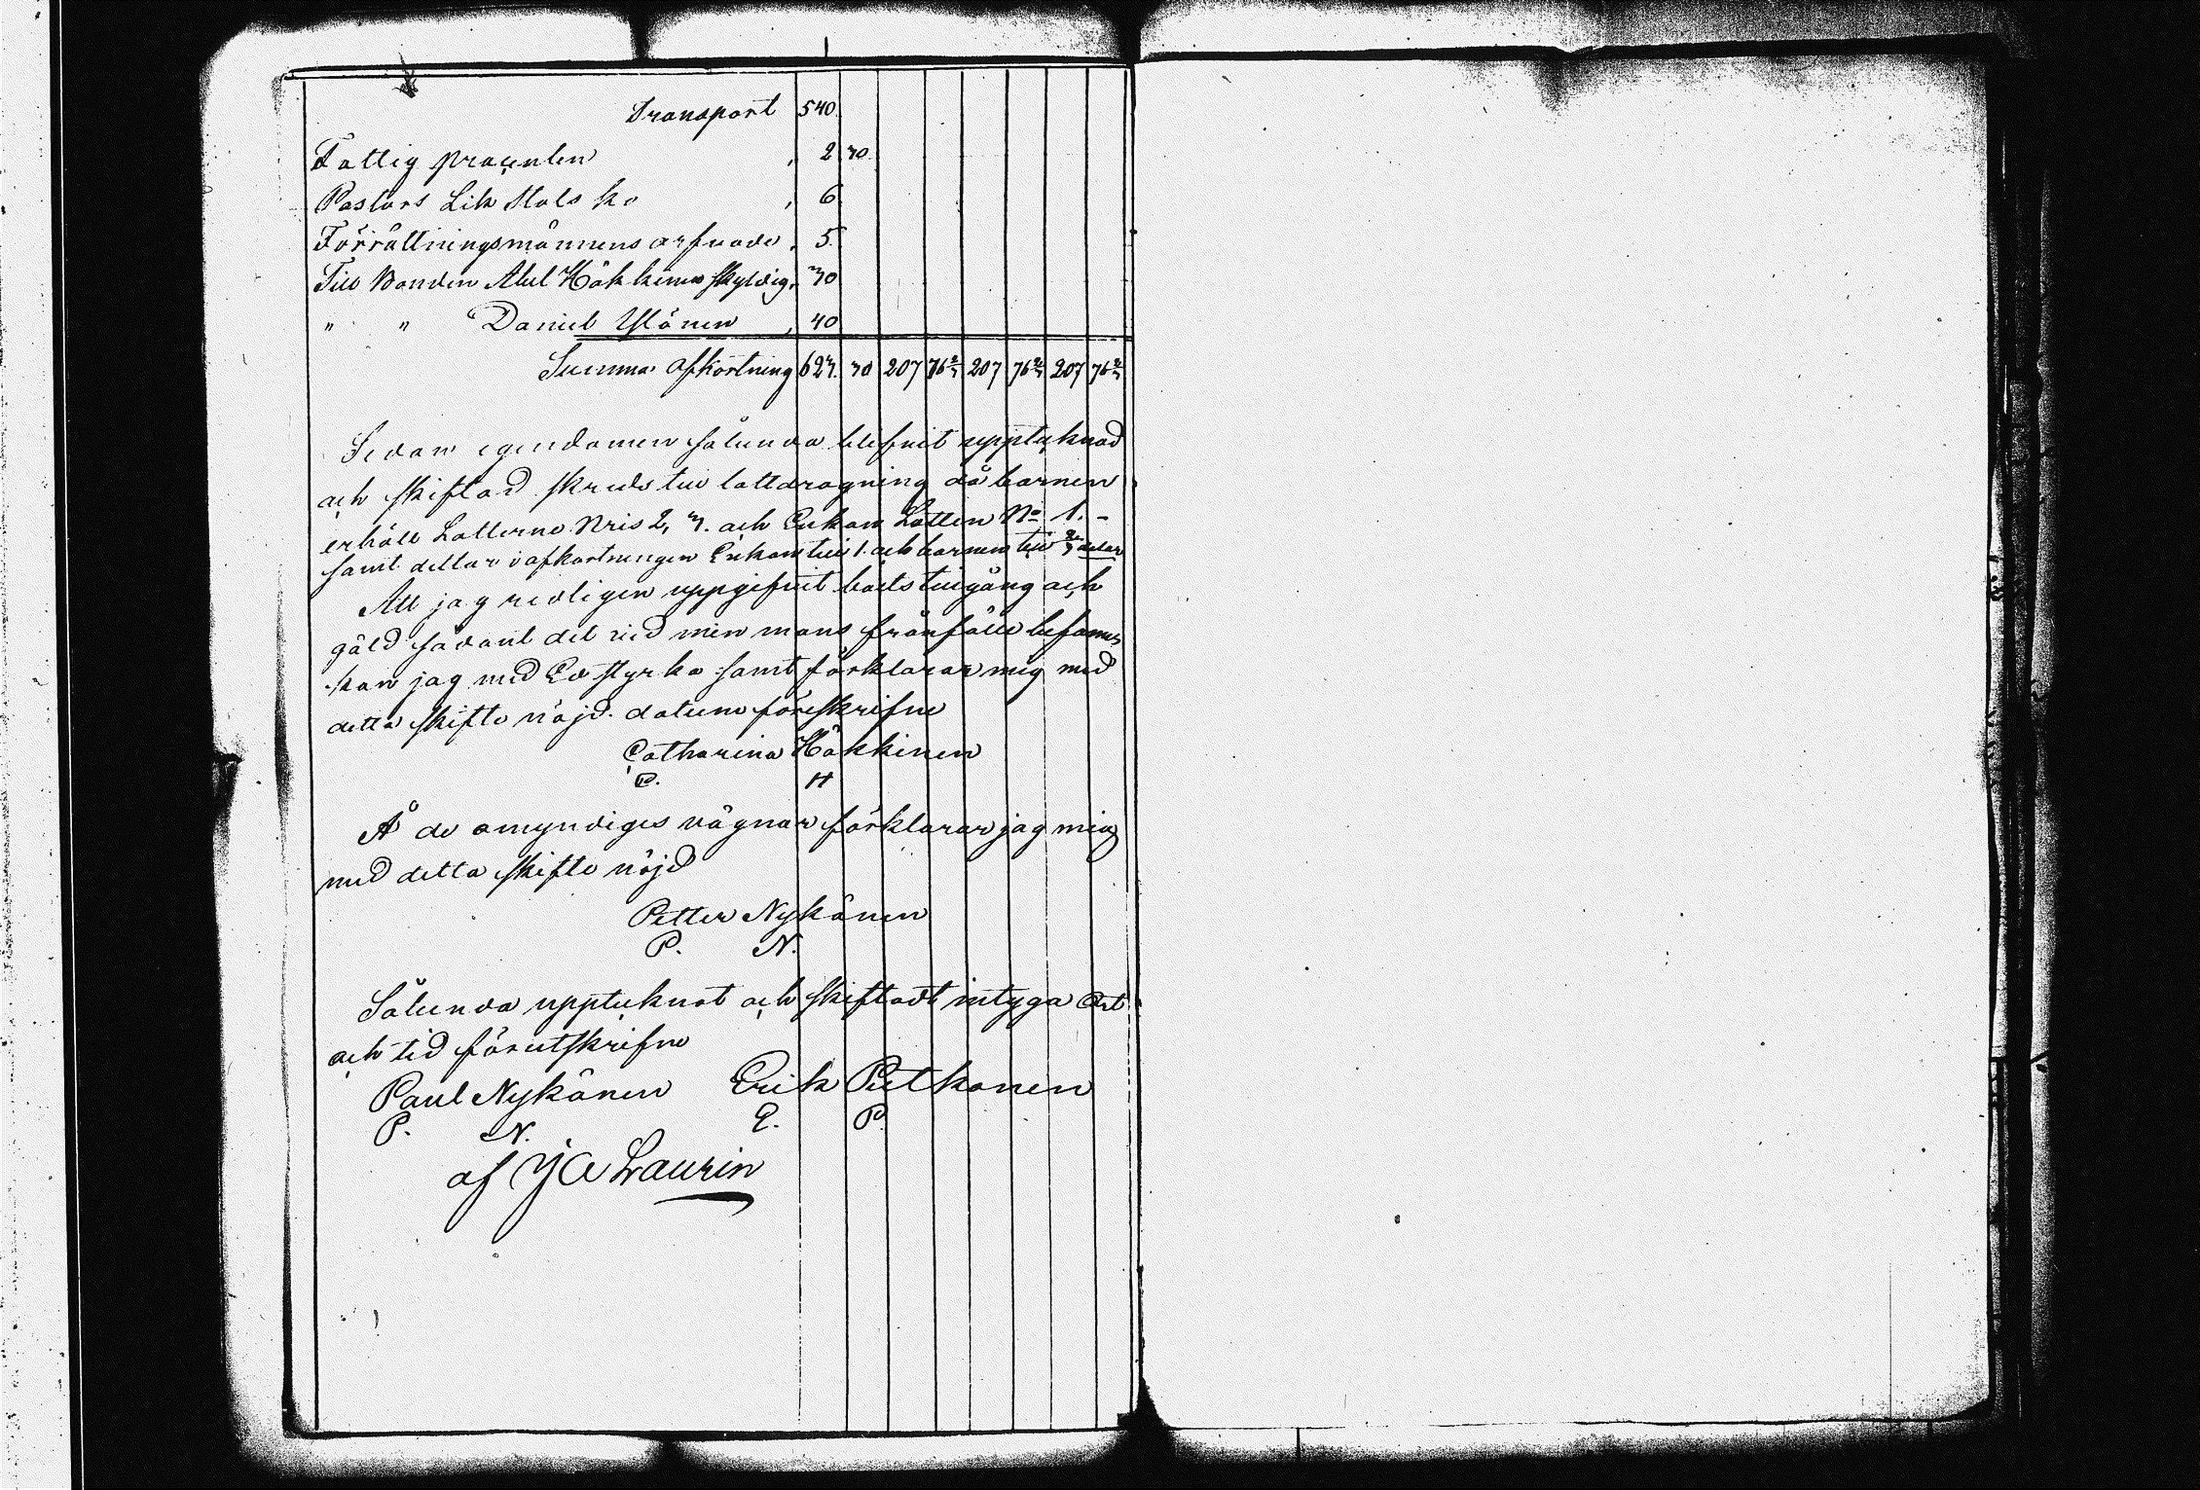 Transport 540.
Fattig procenten , 2 30
Pastors Lik Stols ko , 6
Förrättningsmännens arfvode , 5.
Till Bonden Abel Häkkinen skyldig , 30
" " Daniel Ylönen , 40
Summa afkortning 623. 30 207 76 2/3 207 76 2/3 207 76 2/3
Sedan egendomen sålunda blefvit uppteknad
och skiftad skreds till lottdragning då barnen
erhöll Lotterne Nris 2, 3. och Enkan Lotten No 1. -
samt deltar i afkortningen Enkan till 1. och barnen till 2/3 delar
Att jag redligen uppgifvit boets tillgång och
gäld sådant det vid min mans frånfälle befanns
kan jag med Ed styrka samt förklarar mig med
detta skifte nöjd. datum föreskrifne
Catharina Häkkinen
C. H
Å de omyndiges vägnar förklarar jag mig
med detta skifte nöjd
Petter Nykänen
P. N.
Sålunda upptеknat och skiftadt intyga Ort
och tid förutskrifne
Paul Nykänen Erik Pietkonen
P. N. E. P.
af J A Laurin